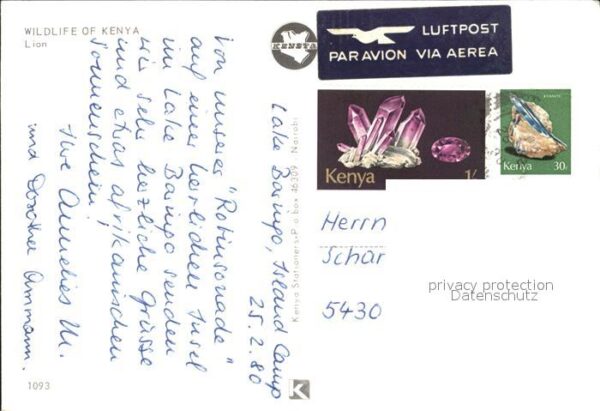 WILDLIFE OF KENYA
Lion
KENSTA
LUFTPOST
PAR AVION VIA AEREA
Kenya
1/-
KYANITE
Kenya
30c
Lake Baringo, Island Camp
25.2.80
Von unserer "Robinsonade"
auf einer herrlichen Insel
im Lake Baringo senden
wir sehr herzliche Grüsse
und etwas afrikanischen
Sonnenschein!
Ihre Annelies M.
und Dorothea Ammann.
Kenya Stationers - P.o.box 46309 - Nairobi
Herrn
Schär
5430
privacy protection
Datenschutz
1093
K